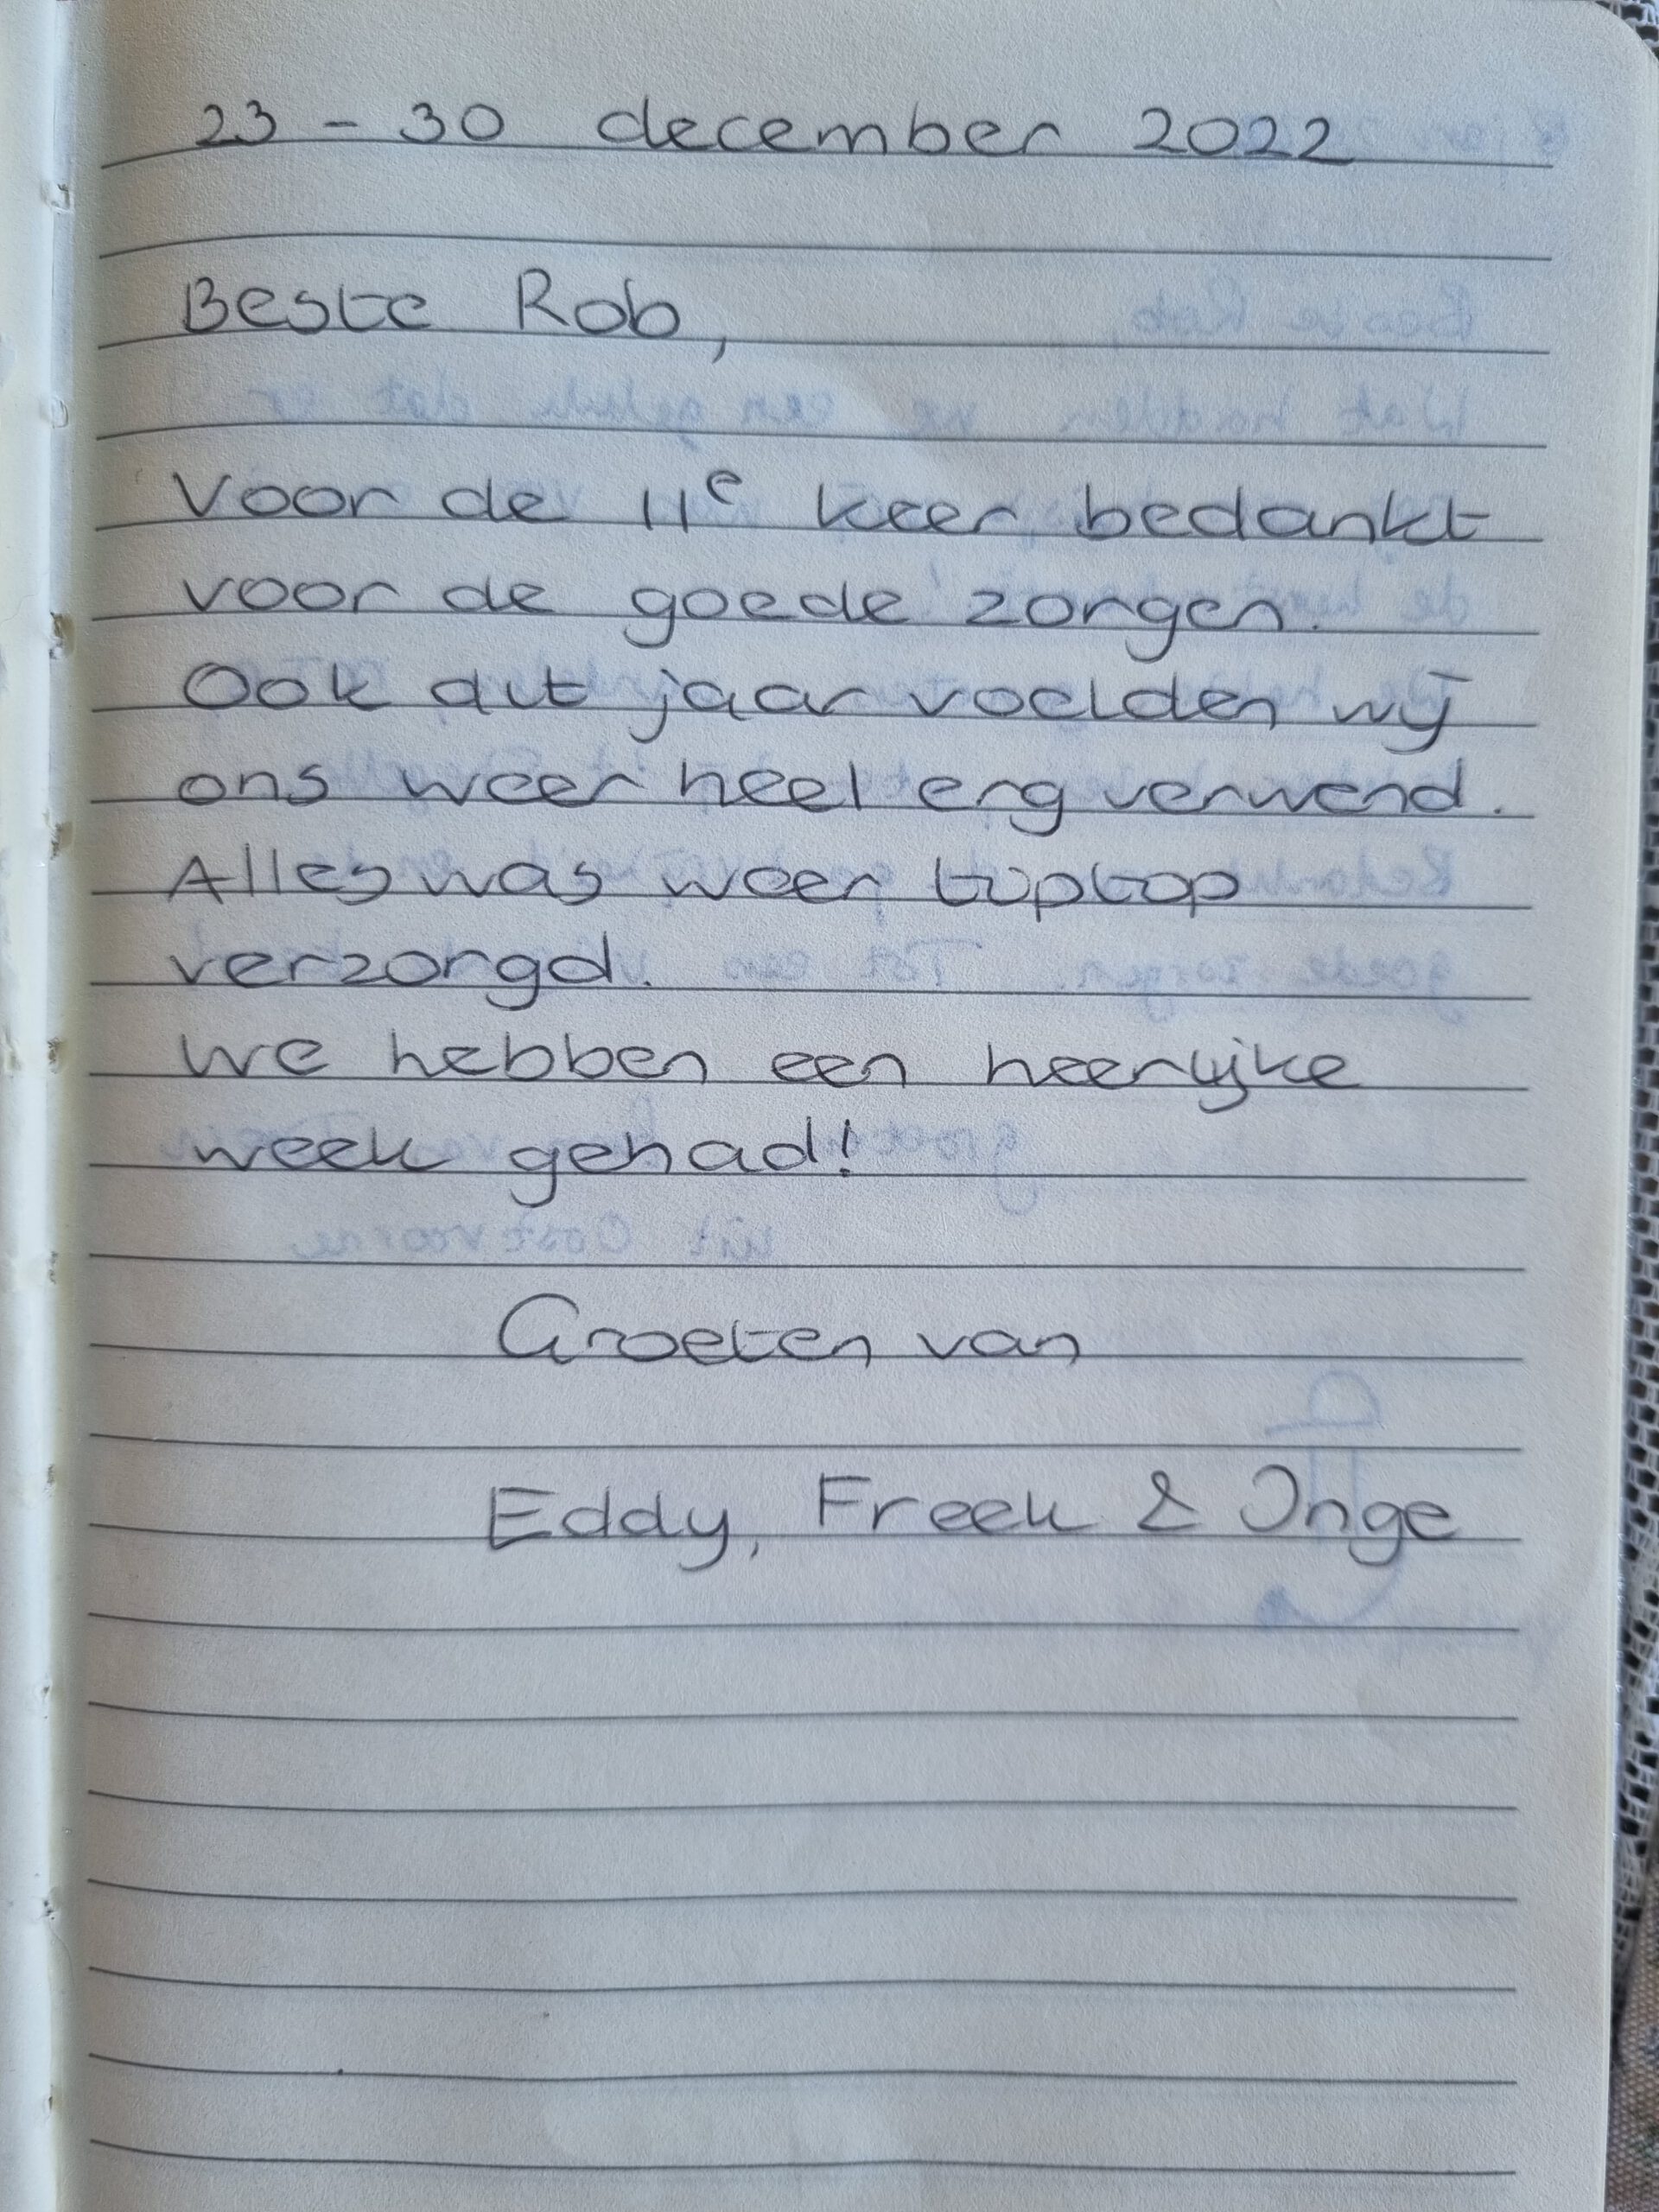 23 - 30 december 2022
Beste Rob,
Voor de 11e keer bedankt
voor de goede zorgen.
Ook dit jaar voelden wij
ons weer heel erg verwend.
Alles was weer tiptop
verzorgd.
We hebben een heerlijke
week gehad!
Groeten van
Eddy, Freek & Inge